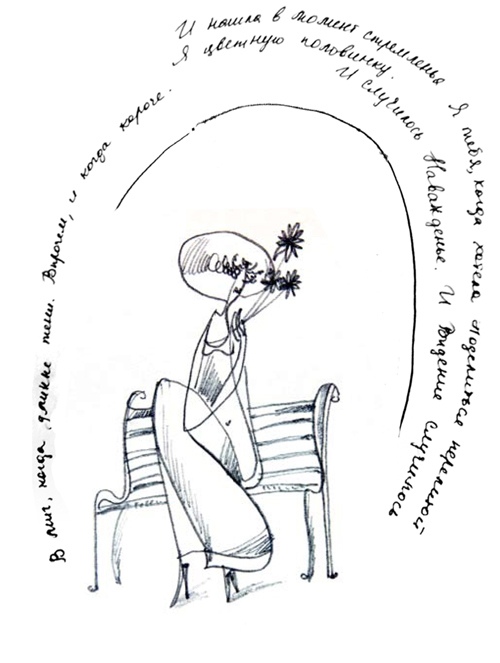 В миг, когда длиннее тени. Впрочем, и когда короче.
И нашла в момент стремленья
Я цветную половинку.
Я тебя, когда хотела поделиться нереальной
И случилось Наважденье. И Видение случилось